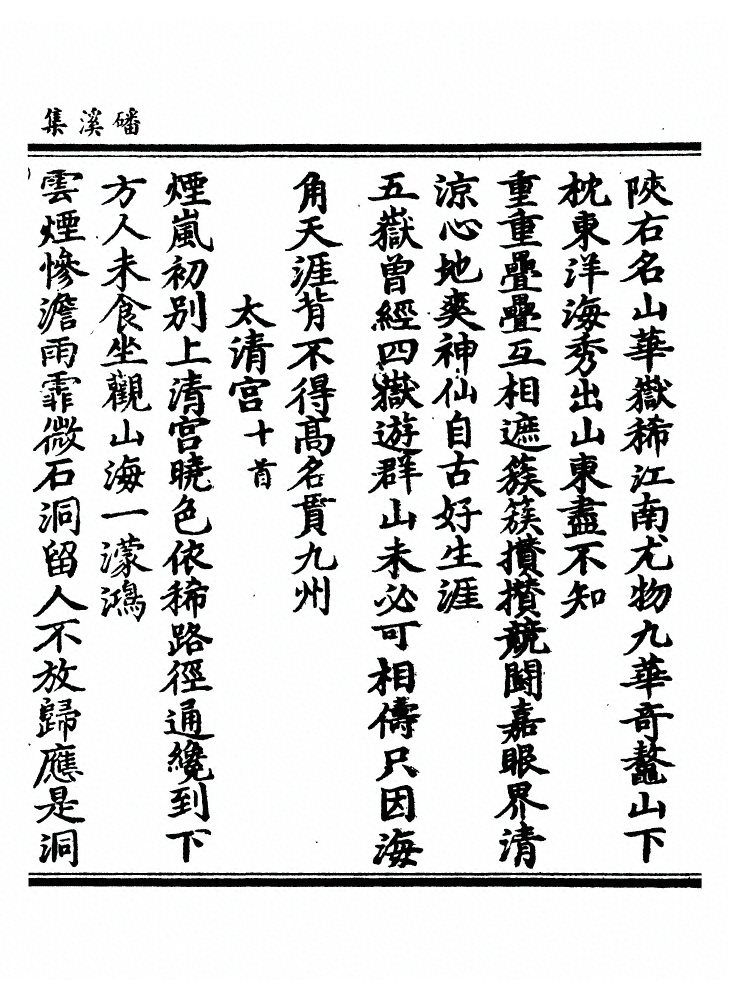 磻溪集
陝右名山華嶽稀江南尤物九華奇鼇山下
枕東洋海秀出山東盡不知
重重疊疊互相遮簇簇攢攢競鬭嘉眼界清
涼心地爽神仙自古好生涯
五嶽曾經四嶽遊群山未必可相儔只因海
角天涯背不得高名貫九州
太清宮十首
煙嵐初別上清宮曉色依稀路徑通纔到下
方人未食坐觀山海一濛鴻
雲煙慘澹雨霏微石洞留人不放歸應是洞